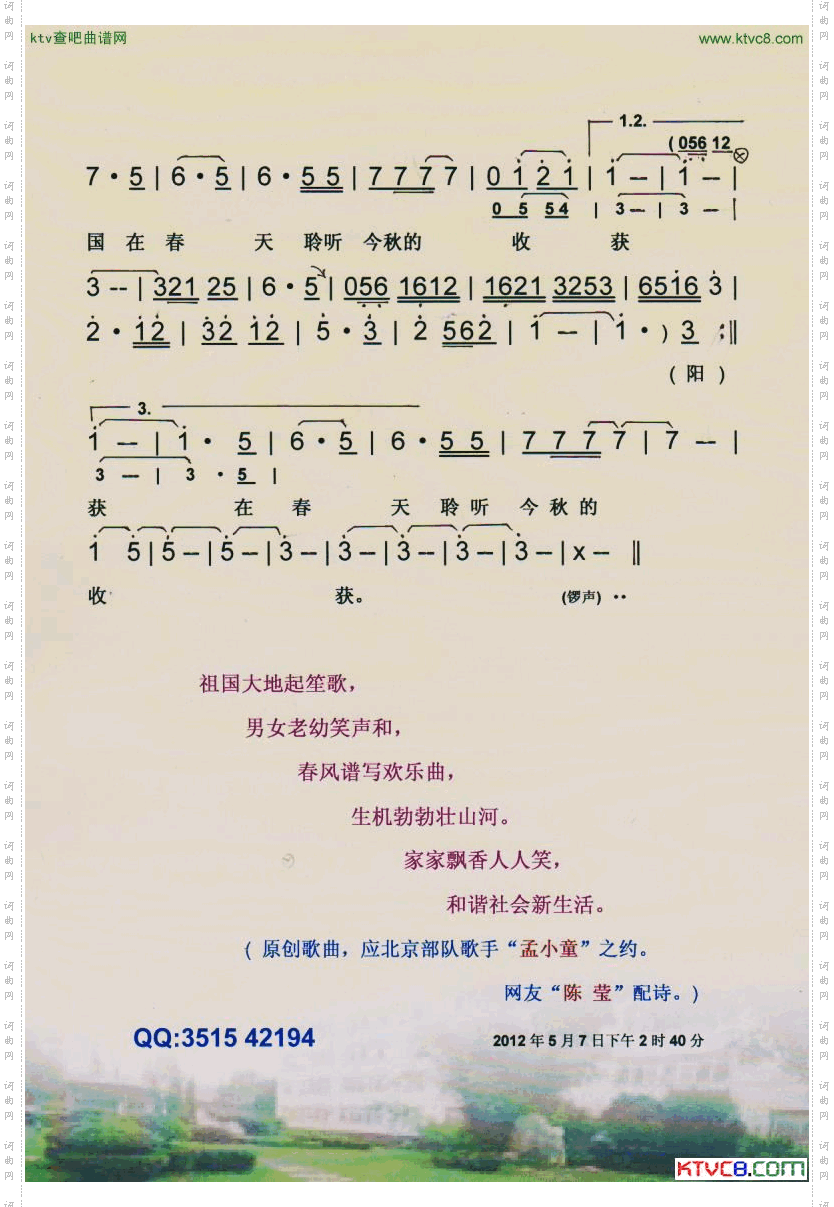 ktv查吧曲谱网 www.ktvc8.com
1.2.
(056 12
7·5|6·5|6·55|7777|01̇2̇1̇|1̇–|1̇–|
0 5 54 | 3– | 3– |
国 在 春 天 聆听 今秋的 收 获
3--|321 25|6·5|056 1612|1621 3253|6516 3̇|
2̇·1̇2̇|3̇2̇ 1̇2̇|5̇·3̇|2̇ 562̇|1̇–|1̇·) 3 :‖
( 阳 )
3.
1̇–|1̇· 5|6·5|6·55|7777|7--|
3 – | 3 · 5 |
获 在 春 天 聆 听 今 秋 的
1̇ 5̇|5̇–|5̇–|3̇–|3̇–|3̇–|3̇–|3̇–|x– ‖
收 获。 (锣声) ··
祖国大地起笙歌，
男女老幼笑声和，
春风谱写欢乐曲，
生机勃勃壮山河。
家家飘香人人笑，
和谐社会新生活。
( 原创歌曲，应北京部队歌手“孟小童”之约。
网友“陈 莹”配诗。)
QQ:3515 42194 2012 年 5 月 7 日下午 2 时 40 分
KTVC8.com